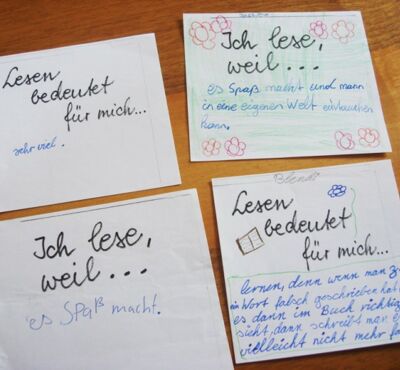 Lesen
bedeutet
für mich...
sehr viel.
Ich lese,
weil...
es Spaß macht und mann
in eine eigenen Welt eintauchen
kann.
Ich lese,
weil...
es Spaß macht.
Lesen
bedeutet
für mich...
lernen, denn wenn man z
ein Wort falsch geschrieben hat
es dann im Buch richtig
sieht, dann schreibt man e
vielleicht nicht mehr fa